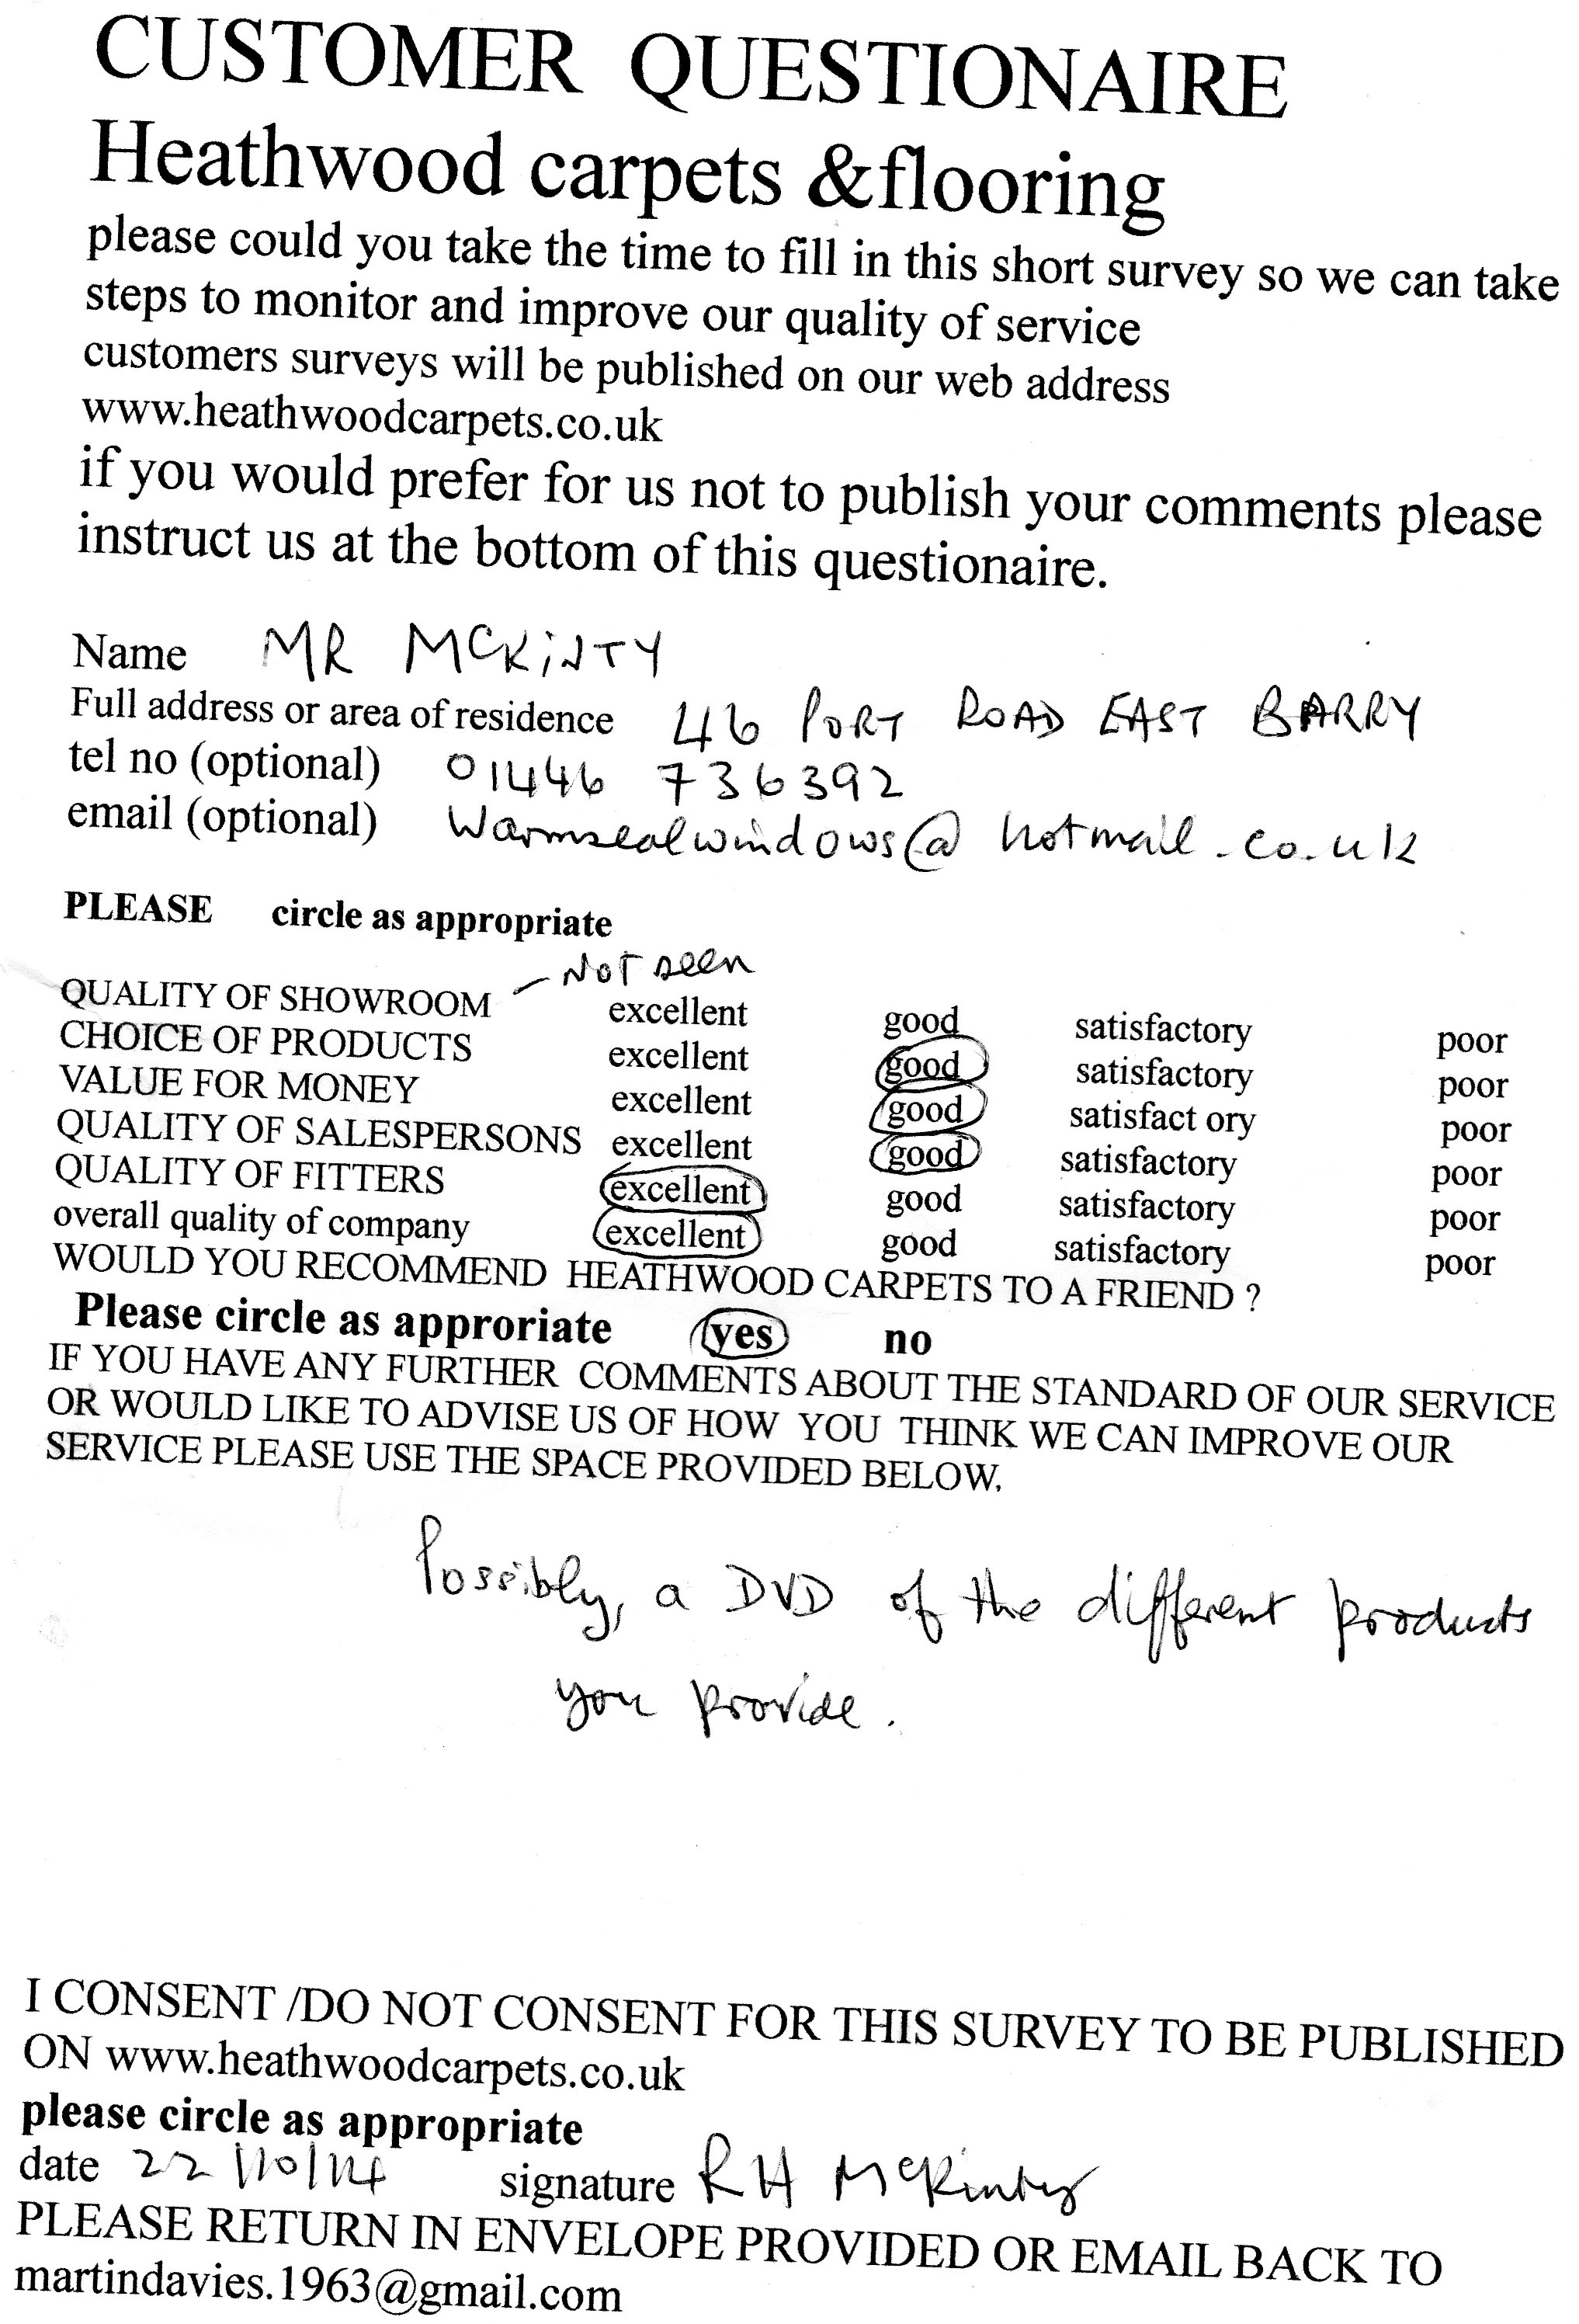 CUSTOMER QUESTIONAIRE
Heathwood carpets &flooring
please could you take the time to fill in this short survey so we can take
steps to monitor and improve our quality of service
customers surveys will be published on our web address
www.heathwoodcarpets.co.uk
if you would prefer for us not to publish your comments please
instruct us at the bottom of this questionaire.
Name MR MCKINTY
Full address or area of residence 46 PORT ROAD EAST BARRY
tel no (optional) 01446 736392
email (optional) Warmsealwindows@hotmail.co.uk
PLEASE circle as appropriate
– Not seen
QUALITY OF SHOWROOM excellent good satisfactory poor
CHOICE OF PRODUCTS excellent good satisfactory poor
VALUE FOR MONEY excellent good satisfact ory poor
QUALITY OF SALESPERSONS excellent good satisfactory poor
QUALITY OF FITTERS excellent good satisfactory poor
overall quality of company excellent good satisfactory poor
WOULD YOU RECOMMEND HEATHWOOD CARPETS TO A FRIEND ?
Please circle as approriate yes no
IF YOU HAVE ANY FURTHER COMMENTS ABOUT THE STANDARD OF OUR SERVICE
OR WOULD LIKE TO ADVISE US OF HOW YOU THINK WE CAN IMPROVE OUR
SERVICE PLEASE USE THE SPACE PROVIDED BELOW.
Possibly, a DVD of the different products
you provide.
I CONSENT /DO NOT CONSENT FOR THIS SURVEY TO BE PUBLISHED
ON www.heathwoodcarpets.co.uk
please circle as appropriate
date 22/10/14 signature RH McKinty
PLEASE RETURN IN ENVELOPE PROVIDED OR EMAIL BACK TO
martindavies.1963@gmail.com